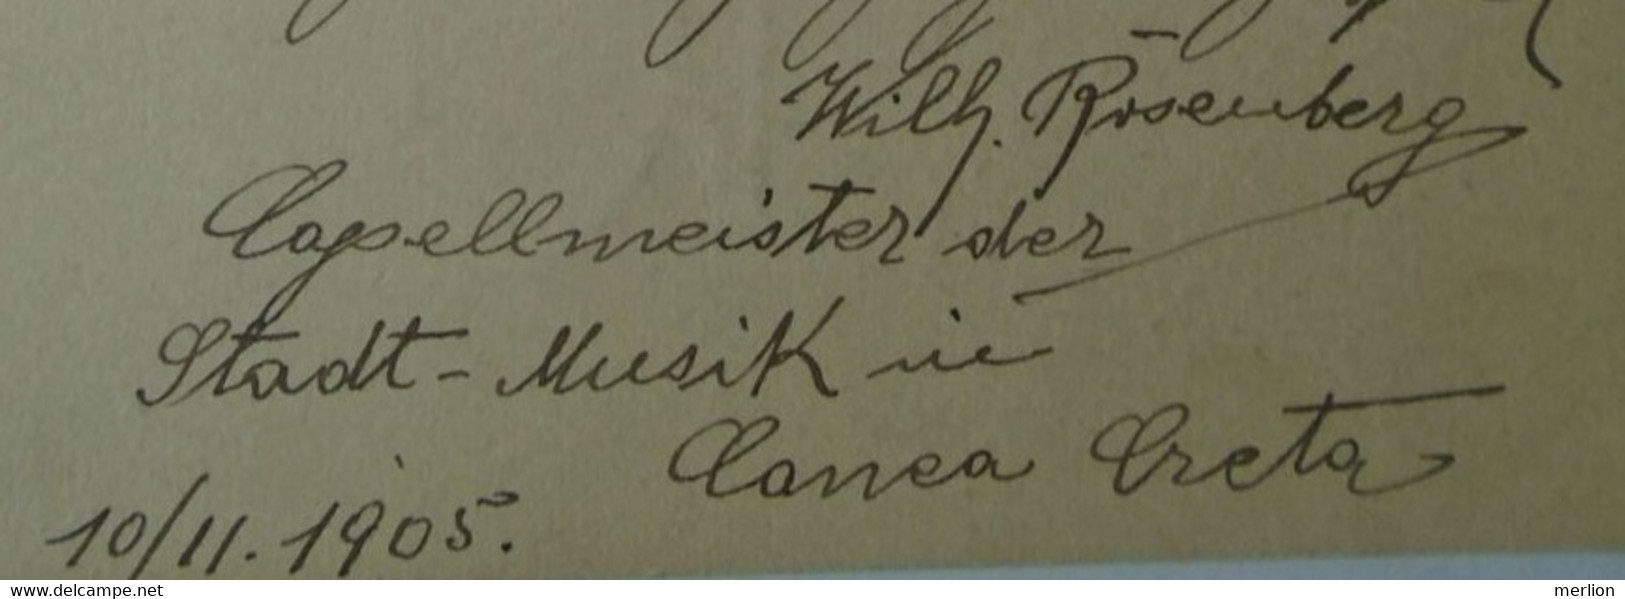 Wilh. Rosenberg
Capellmeister der
Stadt-Musik in
Canea Creta
10/11.1905.
www.delcampe.net
merlion